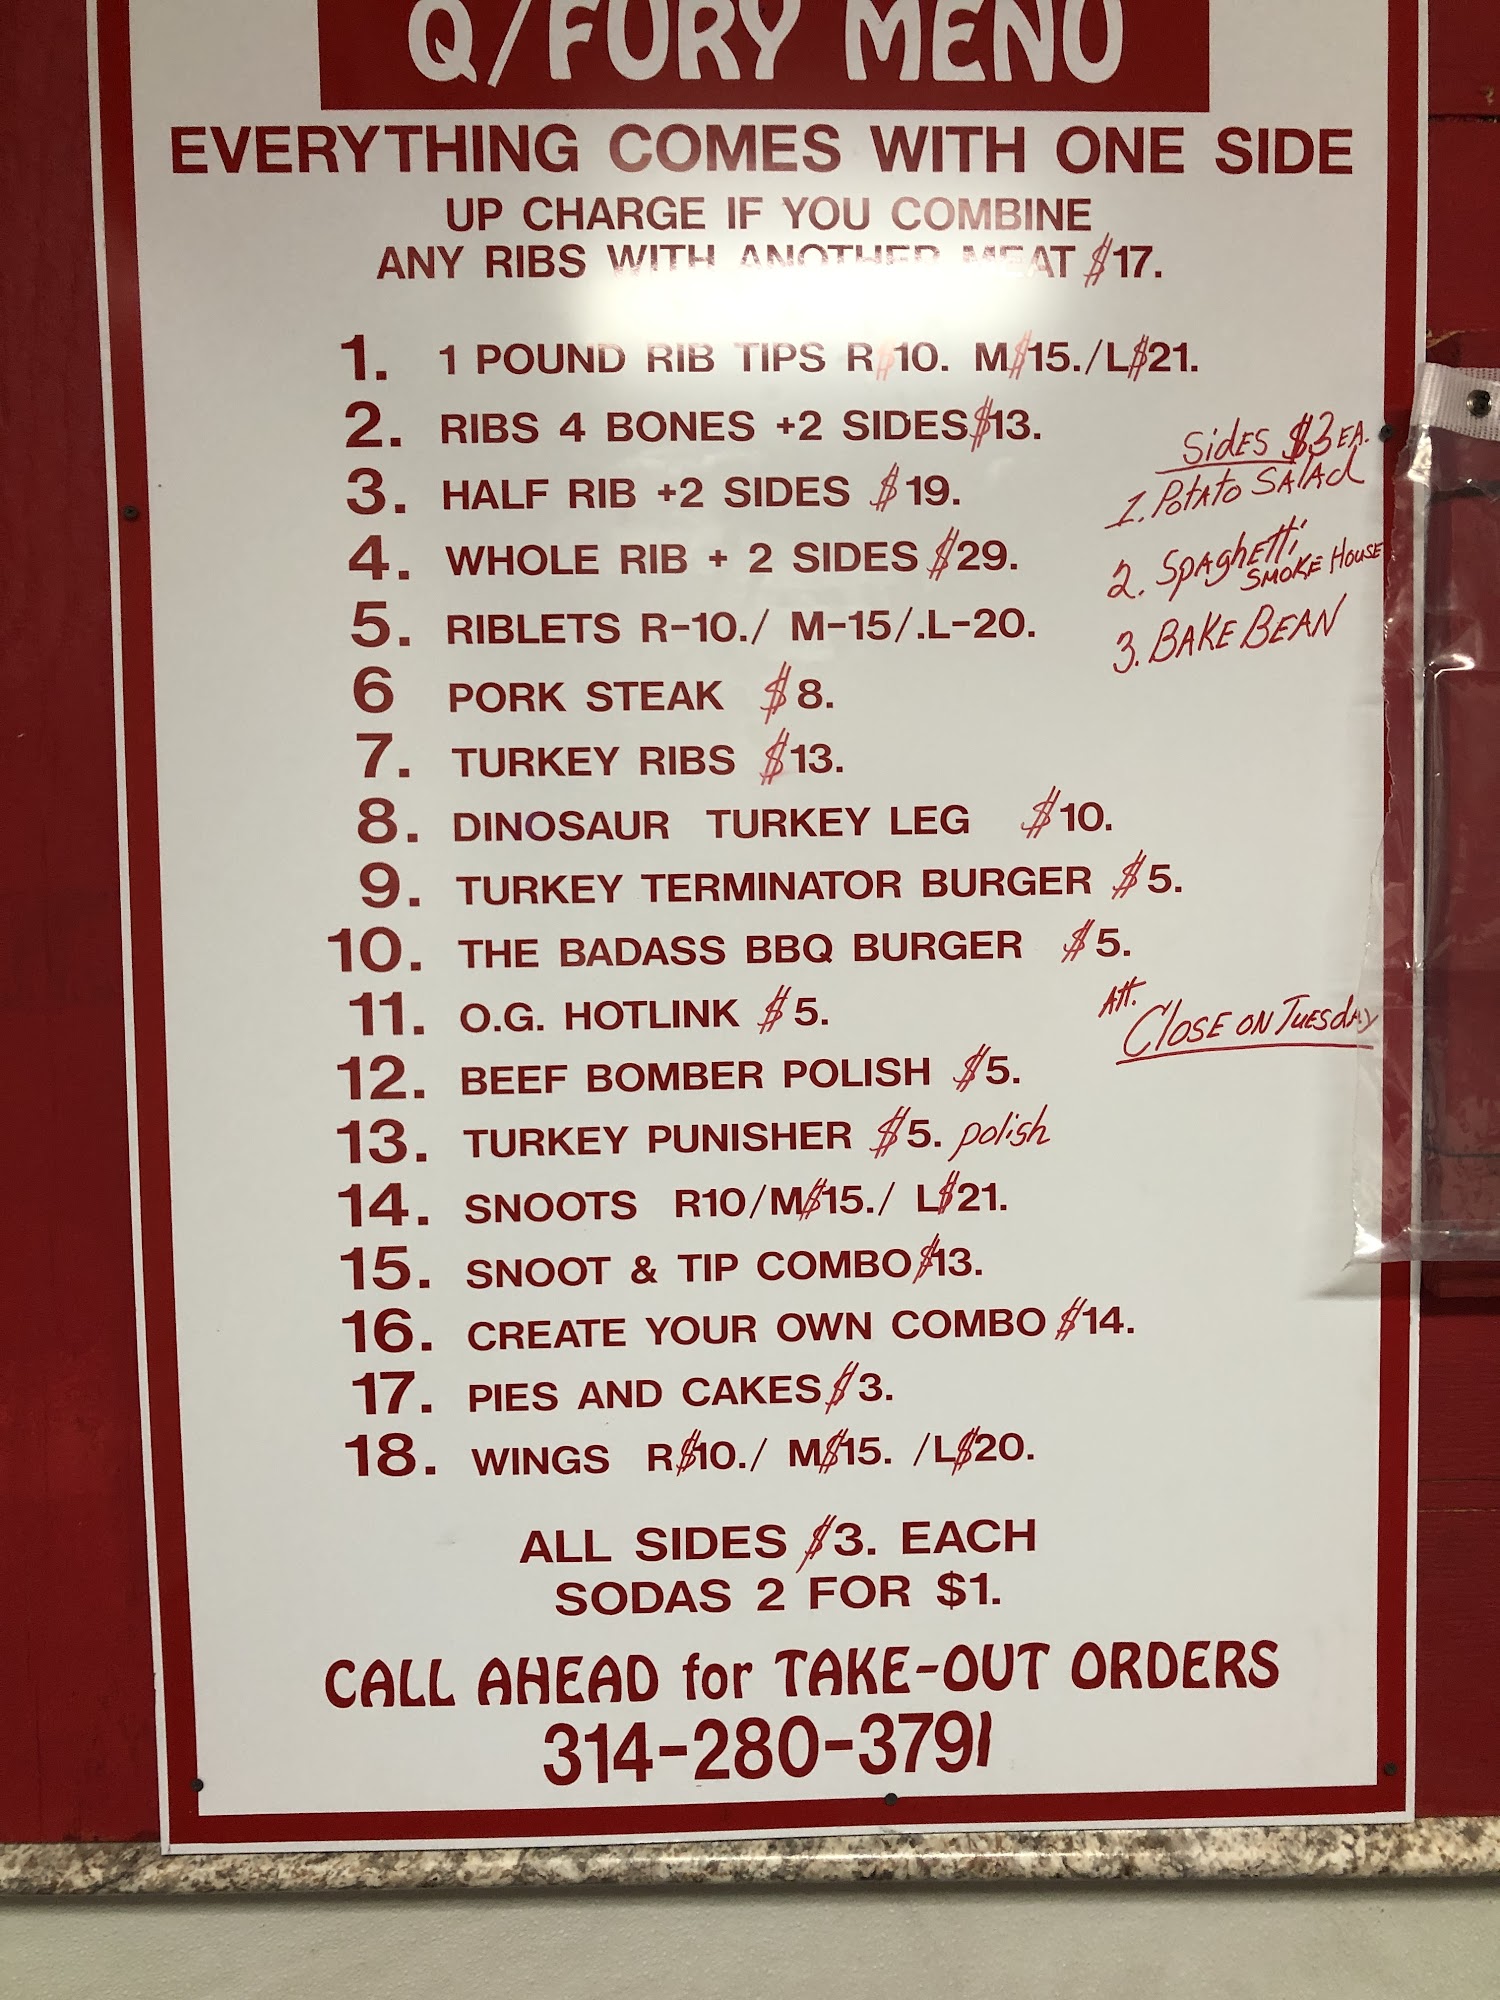 Q/FURY MENU
EVERYTHING COMES WITH ONE SIDE
UP CHARGE IF YOU COMBINE
ANY RIBS WITH ANOTHER MEAT $17.
1. 1 POUND RIB TIPS R$10. M$15./L$21.
2. RIBS 4 BONES +2 SIDES $13.
3. HALF RIB +2 SIDES $19.
4. WHOLE RIB + 2 SIDES $29.
5. RIBLETS R-10./ M-15/.L-20.
6 PORK STEAK $8.
7. TURKEY RIBS $13.
8. DINOSAUR TURKEY LEG $10.
9. TURKEY TERMINATOR BURGER $5.
10. THE BADASS BBQ BURGER $5.
11. O.G. HOTLINK $5.
12. BEEF BOMBER POLISH $5.
13. TURKEY PUNISHER $5. polish
14. SNOOTS R10/M$15./ L$21.
15. SNOOT & TIP COMBO $13.
16. CREATE YOUR OWN COMBO $14.
17. PIES AND CAKES $3.
18. WINGS R$10./ M$15. /L$20.
Sides $3 EA.
1. Potato Salad
2. Spaghetti
SMOKE HOUSE
3. BAKE BEAN
Att.
Close on Tuesday
ALL SIDES $3. EACH
SODAS 2 FOR $1.
CALL AHEAD for TAKE-OUT ORDERS
314-280-3791